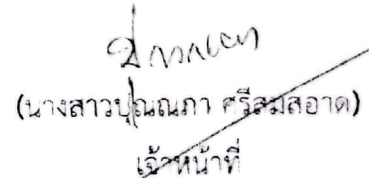 (นางสาวปุณณภา ศรีสมสอาด)
เจ้าหน้าที่